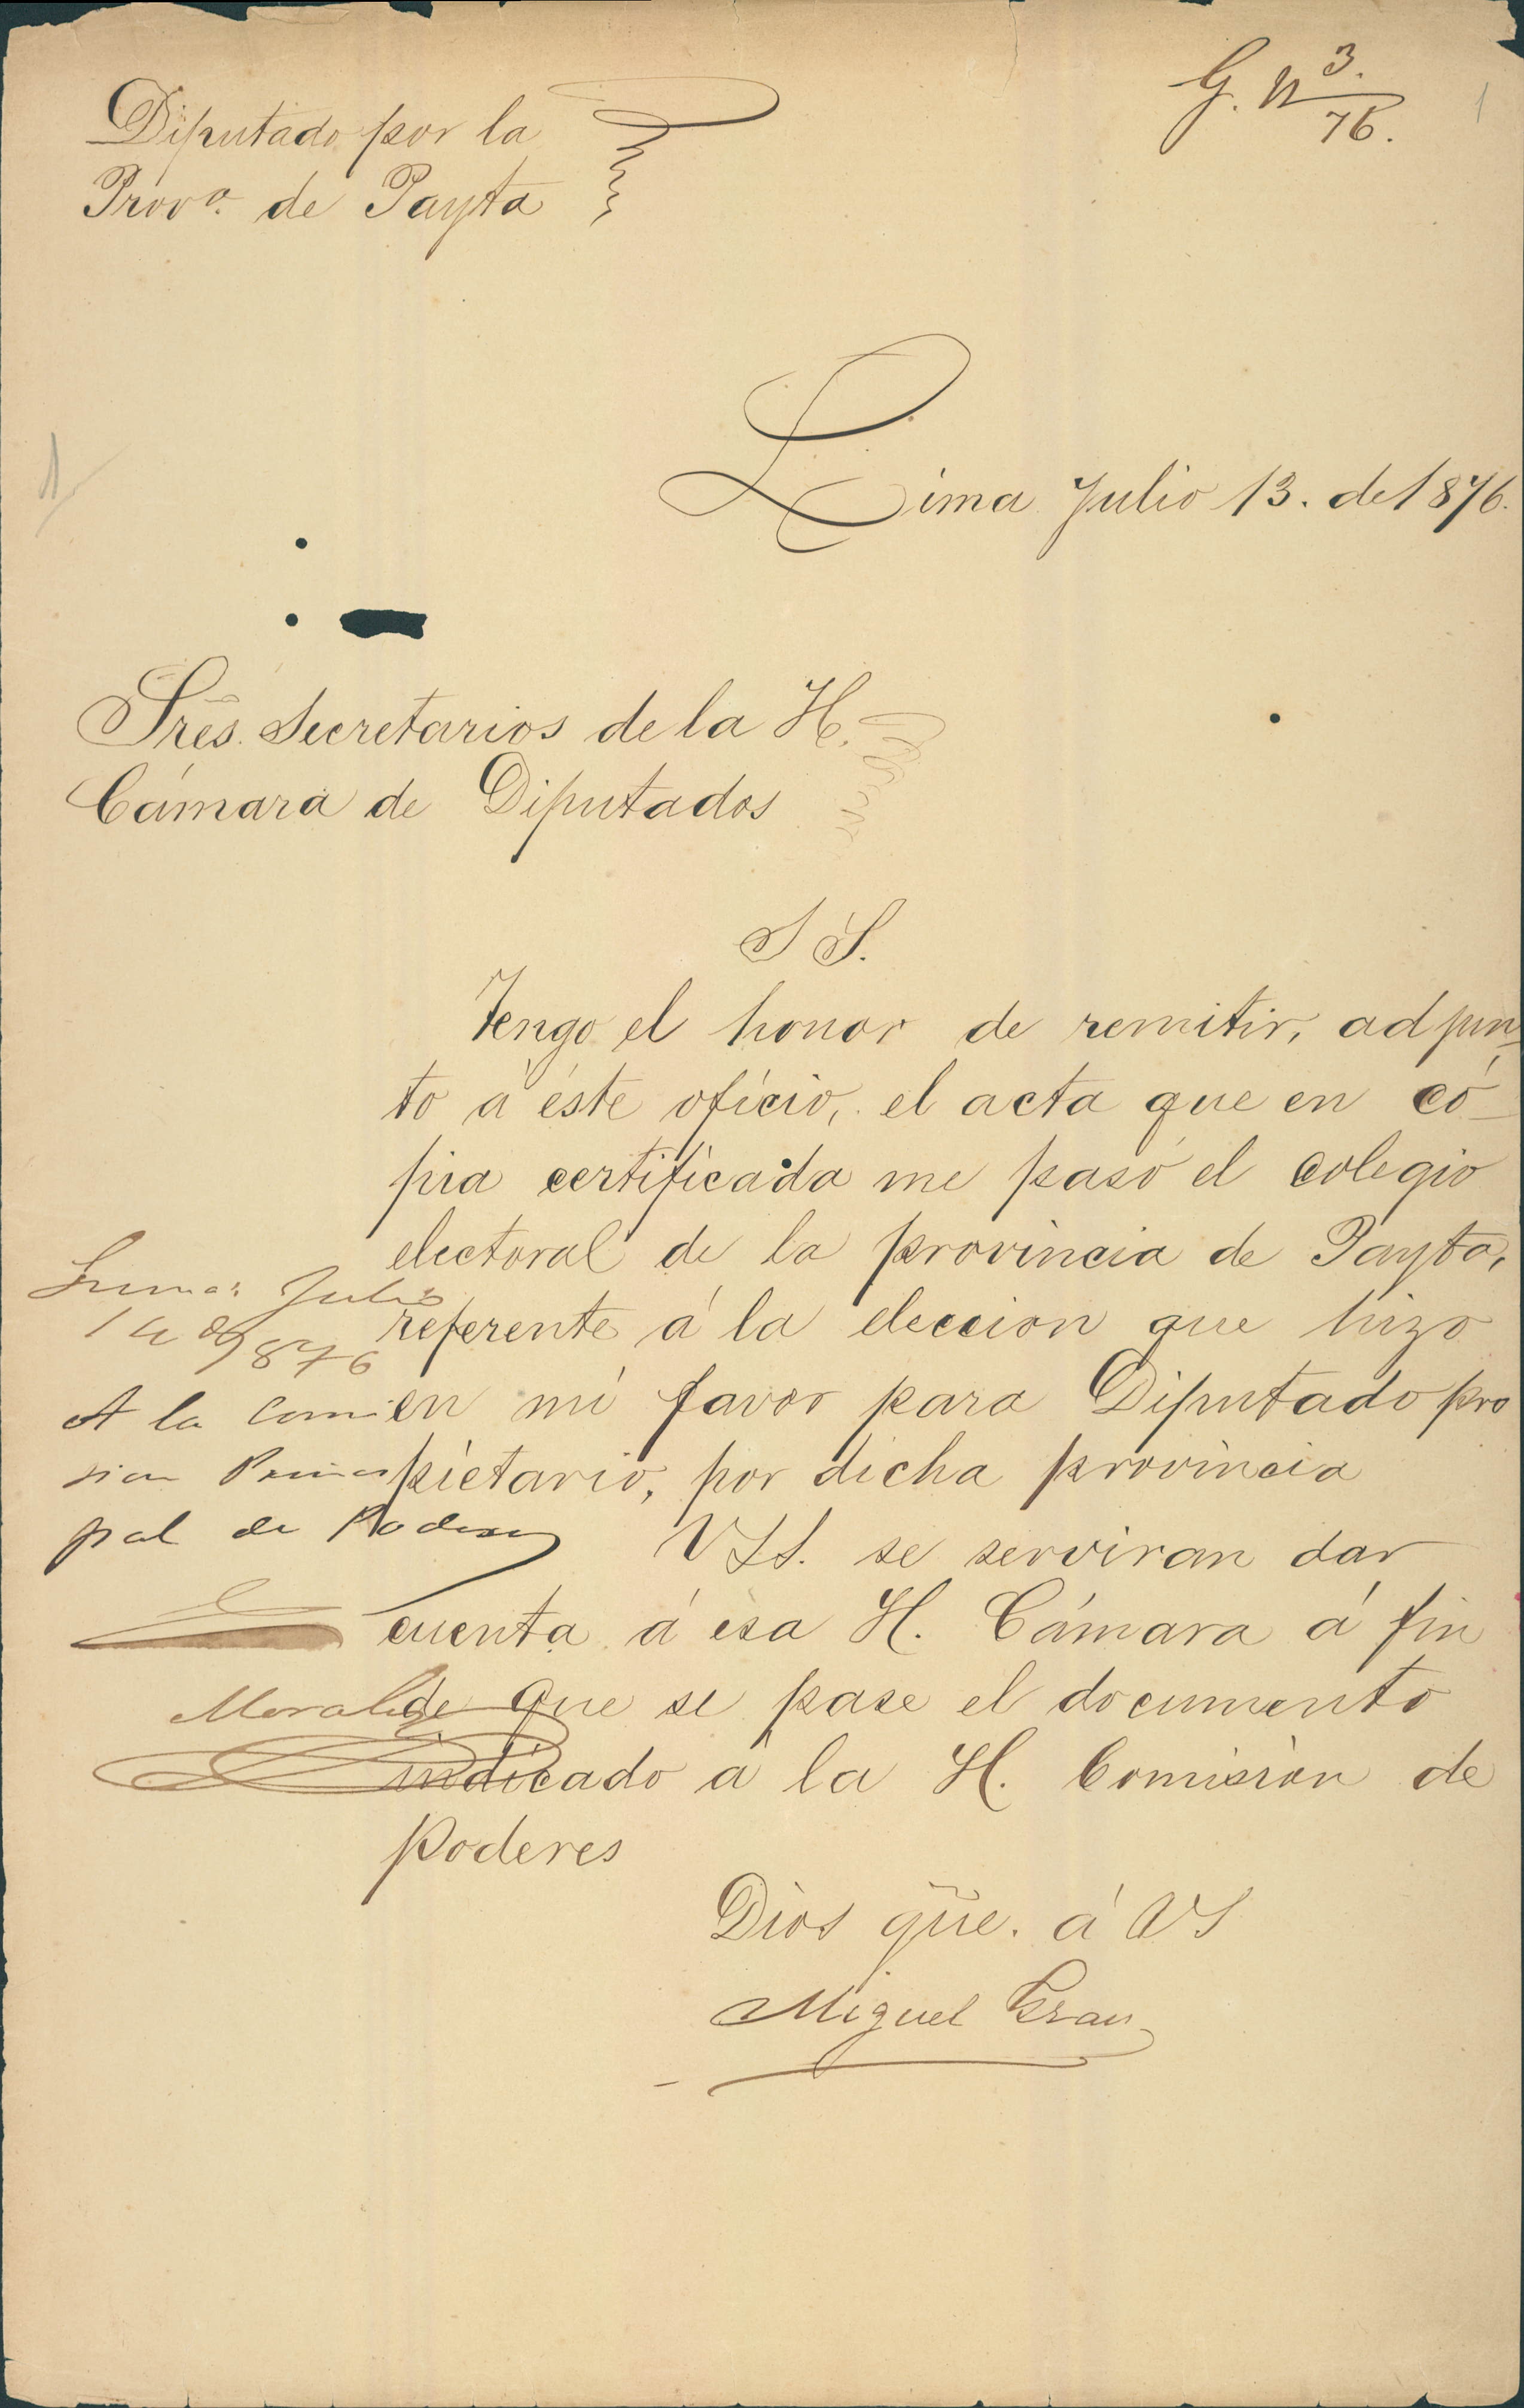 G. N 3.
76.
1
Diputado por la
Prov.ª de Payta
Lima Julio 13. de 1876.
1
Sres. Secretarios de la H.
Cámara de Diputados
S S.
Tengo el honor de remitir, adjun-
to á éste oficio, el acta que en có-
pia certificada me pasó el colegio
electoral de la provincia de Payta,
referente á la eleccion que hizo
en mi favor para Diputado pro
pietario, por dicha provincia
VSS. se serviran dar
cuenta á esa H. Cámara á fin
de que se pase el documento
indicado á la H. Comision de
Poderes
Dios gũe. á VS
Miguel Grau
Lima: Julio
14 de 1876
A la Comi
sion Princi
pal de Poderes
Morales